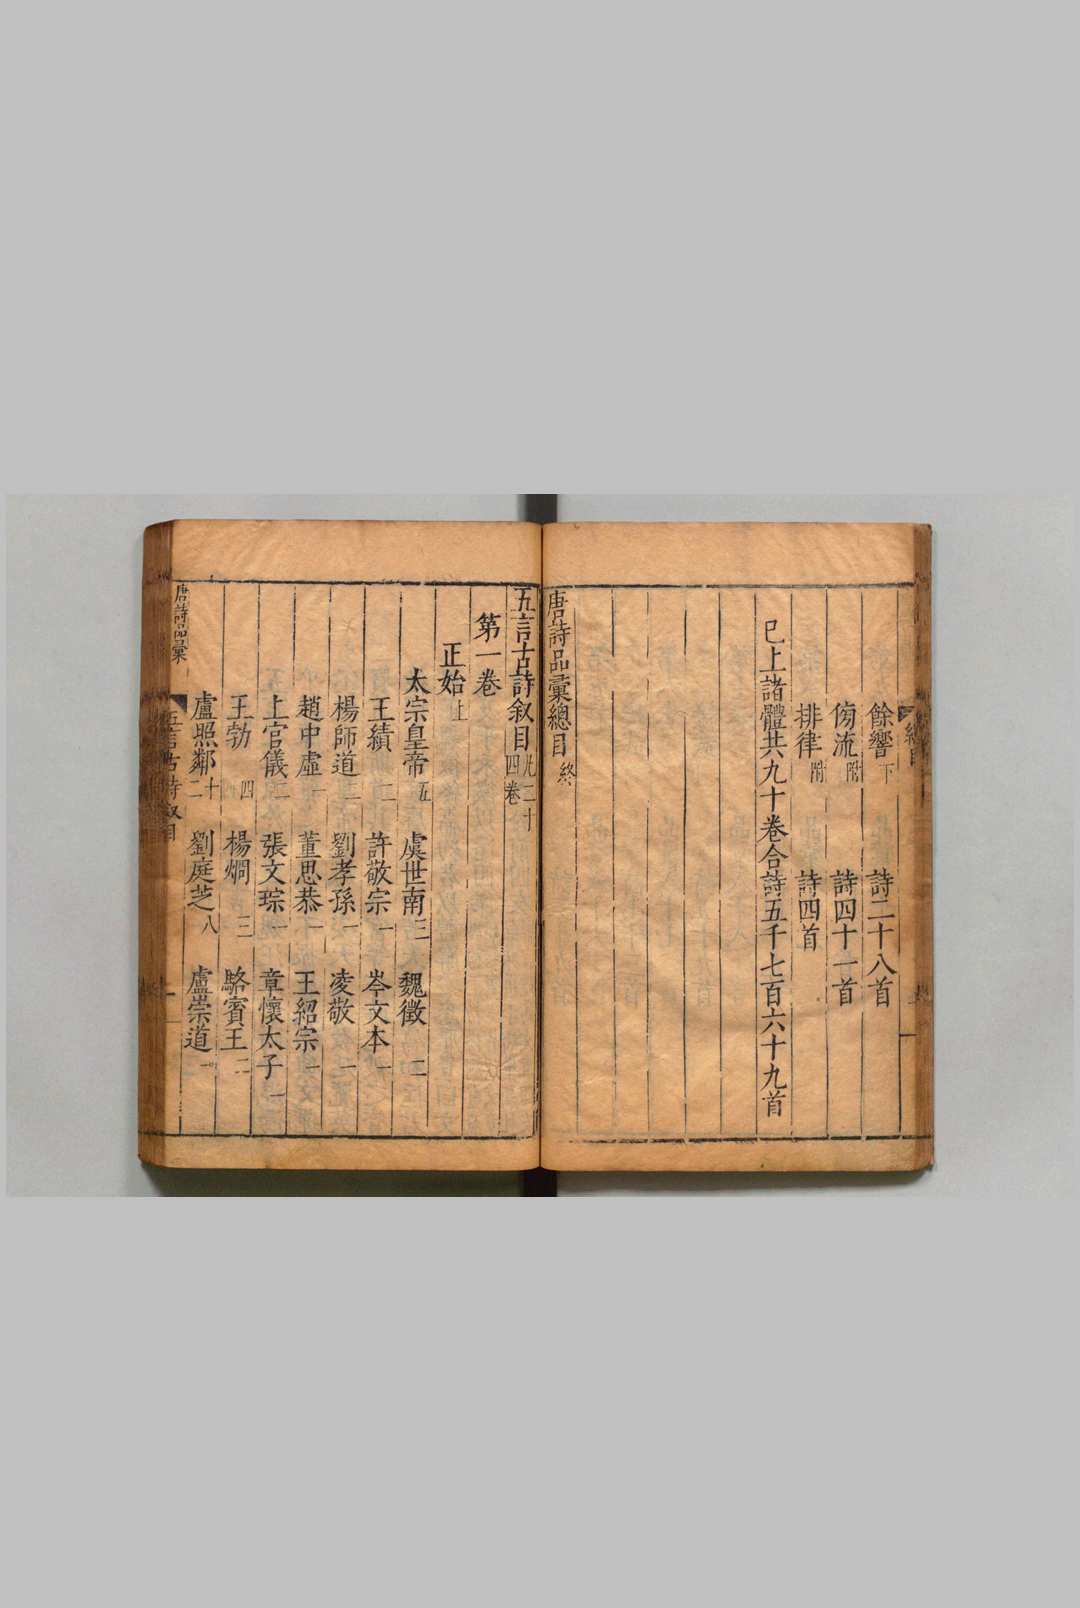 總目
餘響下 詩二十八首
傍流附 詩四十一首
排律附 詩四首
已上諸體共九十卷合詩五千七百六十九首
唐詩品彙總目終
五言古詩叙目凡二十四卷
第一卷
正始上
太宗皇帝五 虞世南三 魏徵二
王績二 許敬宗一 岑文本一
楊師道二 劉孝孫一 凌敬一
趙中虛一 董思恭一 王紹宗一
上官儀二 張文琮一 章懷太子一
王勃四 楊烱三 駱賓王二
盧照鄰十二 劉庭芝八 盧崇道一
唐詩品彙
五言古詩叙目
一